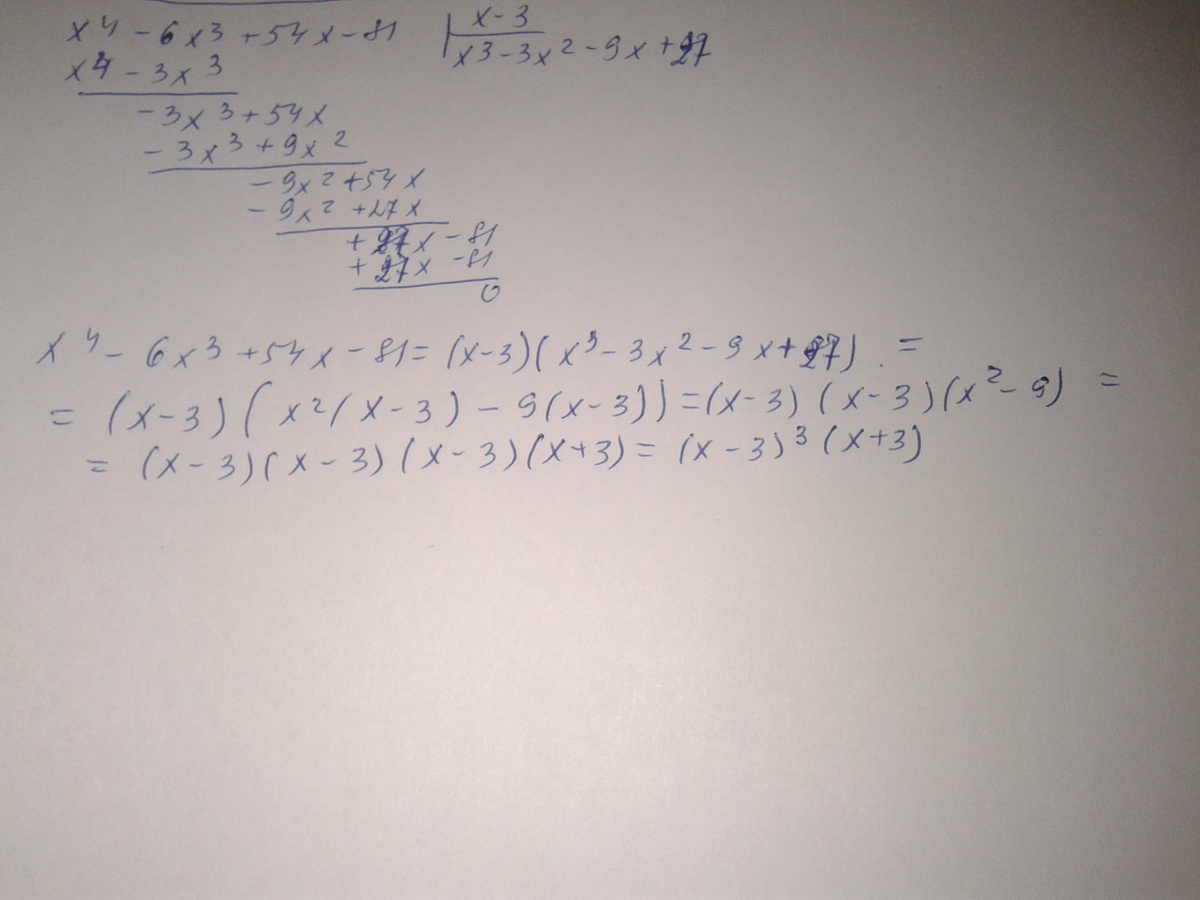 x⁴ - 6x³ + 54x - 81 | x - 3
x⁴ - 3x³ x³ - 3x² - 9x + 27
- 3x³ + 54x
- 3x³ + 9x²
- 9x² + 54x
- 9x² + 27x
+ 27x - 81
+ 27x - 81
0
x⁴ - 6x³ + 54x - 81 = (x - 3)(x³ - 3x² - 9x + 27) =
= (x - 3)(x²(x - 3) - 9(x - 3)) = (x - 3)(x - 3)(x² - 9) =
= (x - 3)(x - 3)(x - 3)(x + 3) = (x - 3)³(x + 3)